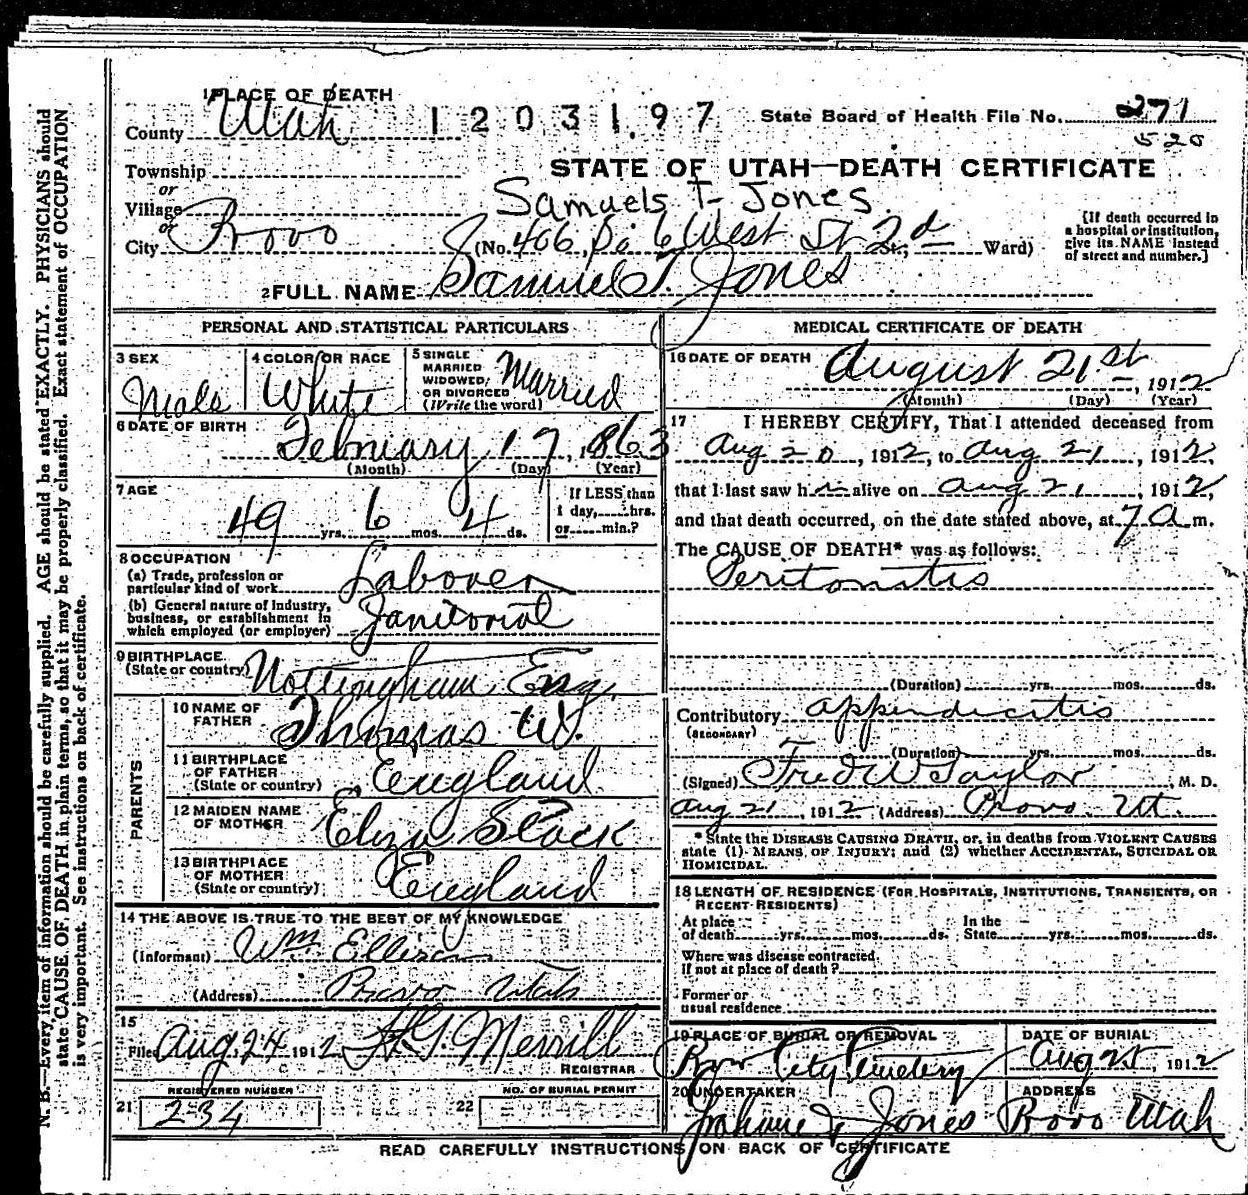 1 PLACE OF DEATH
County Utah
1203197
State Board of Health File No. 271
520
Township
or
Village
or
City Provo
STATE OF UTAH—DEATH CERTIFICATE
Samuels T Jones
(No. 466, So 6 West St 2d St.; Ward)
[If death occurred in
a hospital or institution,
give its NAME instead
of street and number.]
2 FULL NAME Samuel T. Jones
PERSONAL AND STATISTICAL PARTICULARS
3 SEX
Male
4 COLOR OR RACE
White
5 SINGLE
MARRIED
WIDOWED
OR DIVORCED
(Write the word)
Married
6 DATE OF BIRTH
February 17, 1863
(Month) (Day) (Year)
7 AGE
49 yrs. 6 mos. 4 ds.
If LESS than
1 day, hrs.
or min.?
8 OCCUPATION
(a) Trade, profession or
particular kind of work Laborer
(b) General nature of industry,
business, or establishment in
which employed (or employer) Janitorial
9 BIRTHPLACE
(State or country) Nottingham, Eng.
PARENTS
10 NAME OF
FATHER Thomas W.
11 BIRTHPLACE
OF FATHER
(State or country) England
12 MAIDEN NAME
OF MOTHER Eliza Slack
13 BIRTHPLACE
OF MOTHER
(State or country) England
14 THE ABOVE IS TRUE TO THE BEST OF MY KNOWLEDGE
(Informant) Wm Ellison
(Address) Provo Utah
15
Filed Aug 24 1912 H.G. Merrill
REGISTRAR
REGISTERED NUMBER
21 234
NO. OF BURIAL PERMIT
22
MEDICAL CERTIFICATE OF DEATH
16 DATE OF DEATH
August 21st, 1912
(Month) (Day) (Year)
17 I HEREBY CERTIFY, That I attended deceased from
Aug 20, 1912, to Aug 21, 1912,
that I last saw him alive on Aug 21, 1912,
and that death occurred, on the date stated above, at 7 a m.
The CAUSE OF DEATH* was as follows:
Peritonitis
(Duration) yrs. mos. ds.
Contributory appendicitis
(SECONDARY)
(Duration) yrs. mos. ds.
(Signed) Fred W Taylor, M. D.
Aug 21, 1912 (Address) Provo Ut.
* State the DISEASE CAUSING DEATH, or, in deaths from VIOLENT CAUSES
state (1) MEANS OF INJURY; and (2) whether ACCIDENTAL, SUICIDAL OR
HOMICIDAL.
18 LENGTH OF RESIDENCE (FOR HOSPITALS, INSTITUTIONS, TRANSIENTS, OR
RECENT RESIDENTS)
At place
of death yrs. mos. ds.
In the
State yrs. mos. ds.
Where was disease contracted
If not at place of death?
Former or
usual residence
19 PLACE OF BURIAL OR REMOVAL
City Cemetery
DATE OF BURIAL
Aug 25, 1912
20 UNDERTAKER
Jones
ADDRESS
Provo Utah
READ CAREFULLY INSTRUCTIONS ON BACK OF CERTIFICATE
N. B.—Every item of information should be carefully supplied. AGE should be stated EXACTLY. PHYSICIANS should
state CAUSE OF DEATH in plain terms, so that it may be properly classified. Exact statement of OCCUPATION
is very important. See instructions on back of certificate.